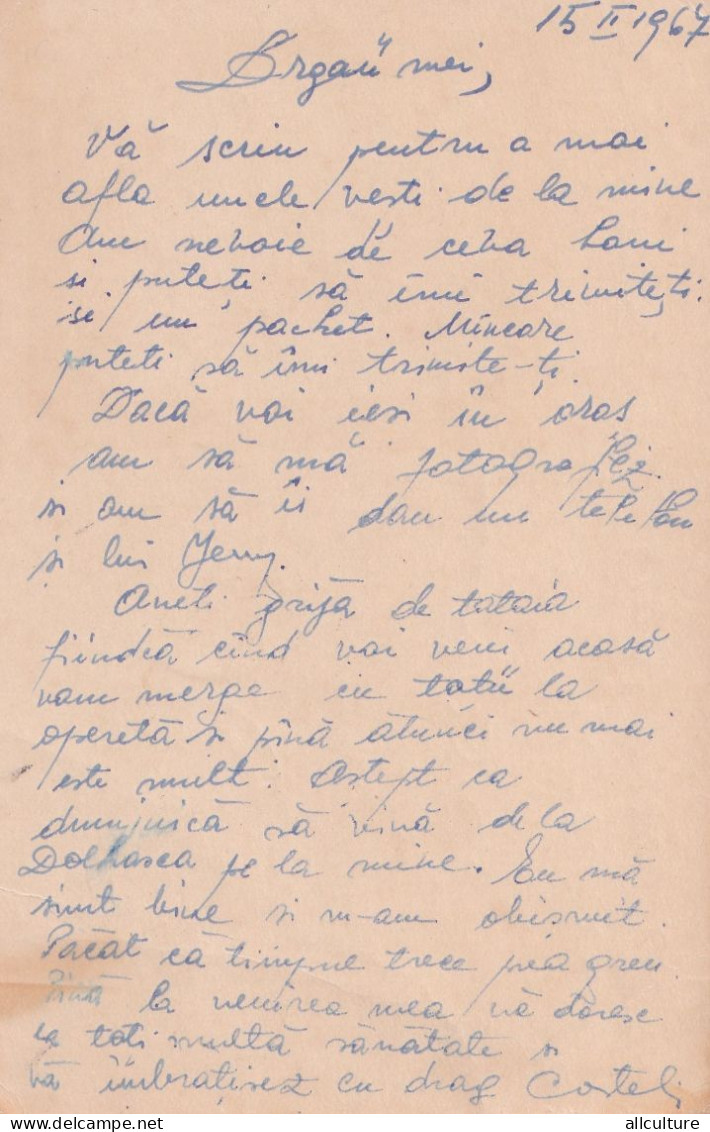 15 II 1967
Drgaii mei,
Vă scriu pentru a mai
afla unele vesti de la mine
Am nevoie de ceva bani
si puteti să îmi trimiteți
si un pachet. Mîncare
puteti să îmi trimite-ți.
Dacă voi iesi în oras
am să mă fotografiez
si am să îi dau un telefon
și lui Jeny.
Aveti grijă de tataia
fiindcă cînd voi veni acasă
vom merge cu totii la
operetă si pînă atunci nu mai
este mult. Astept ca
duminică să vină de la
Dolhasca pe la mine. Eu mă
simt bine si m-am obisnuit.
Păcat că timpul trece prea greu.
Pînă la venirea mea vă doresc
la toti multă sănătate si
vă îmbratisez cu drag Costel
allculture